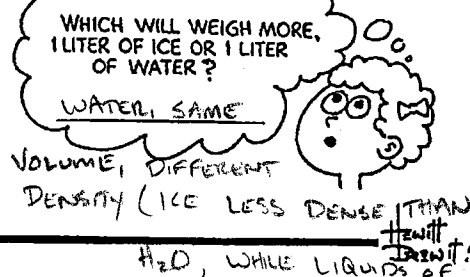 WHICH WILL WEIGH MORE,
1 LITER OF ICE OR 1 LITER
OF WATER?
WATER, SAME
VOLUME, DIFFERENT
DENSITY (ICE LESS DENSE THAN
Hewitt
Drewit!
H₂O, WHILE LIQUIDS OF